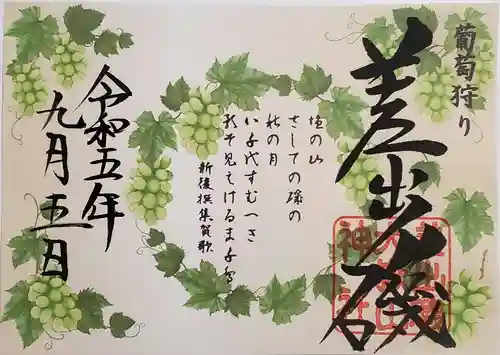 葡萄狩り
差出磯
塩の山
さしての磯の
秋の月
八千代すむへき
影そ見えける
新後撰集賀歌
令和五年
九月十五日
神社